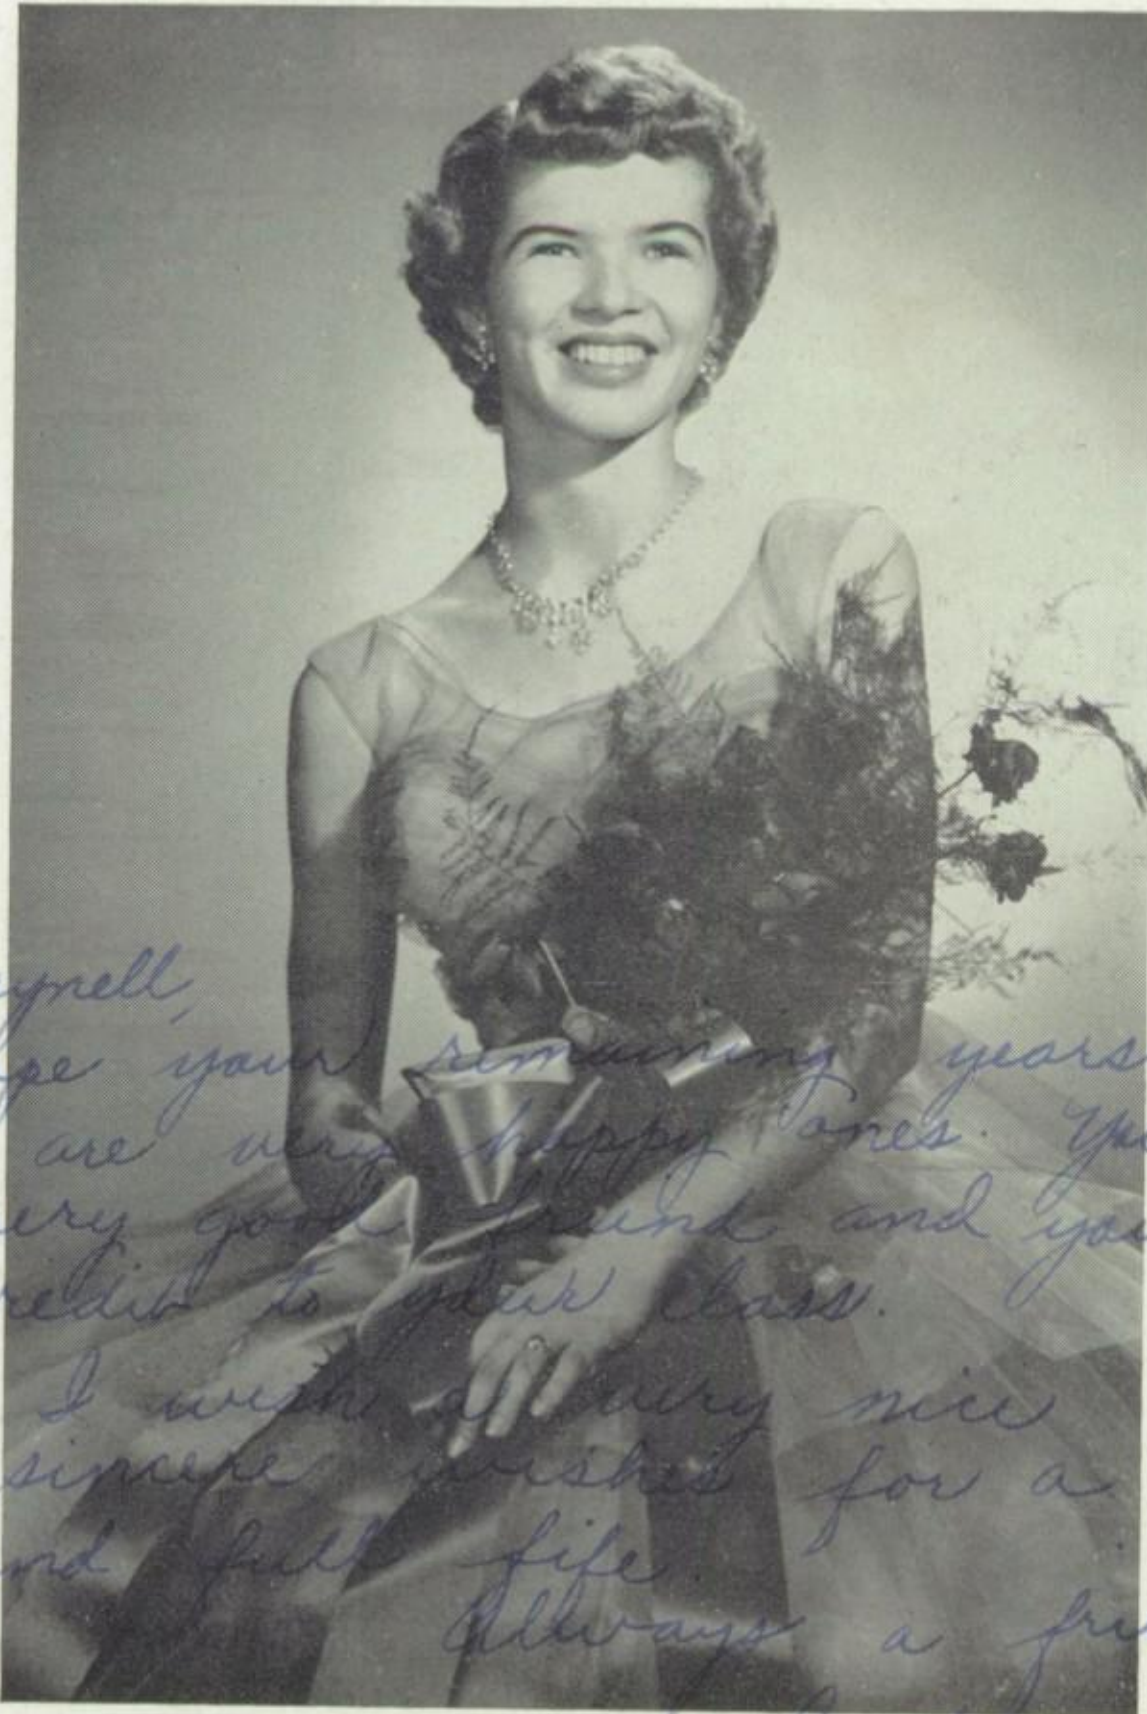 ynell,
pe your remaining years
are very happy ones. Yo
ery good friend and you
redit to your class.
I wish a very nice
sincere wishes for a
nd full life.
Always a fri